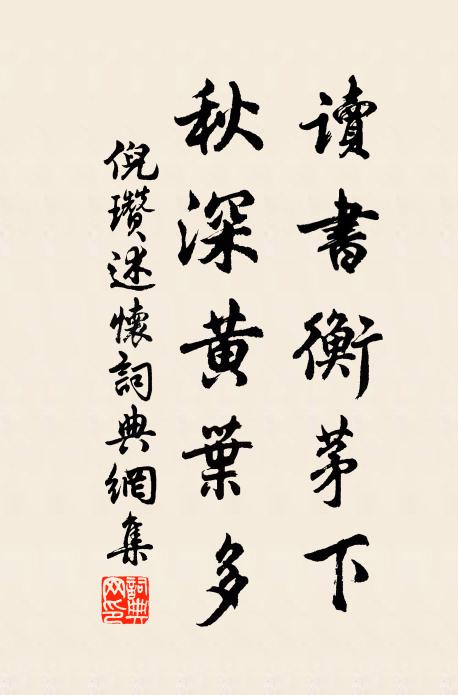 讀書衡茅下
秋深黃葉多
倪瓚述懷詞典網集
詞典網印